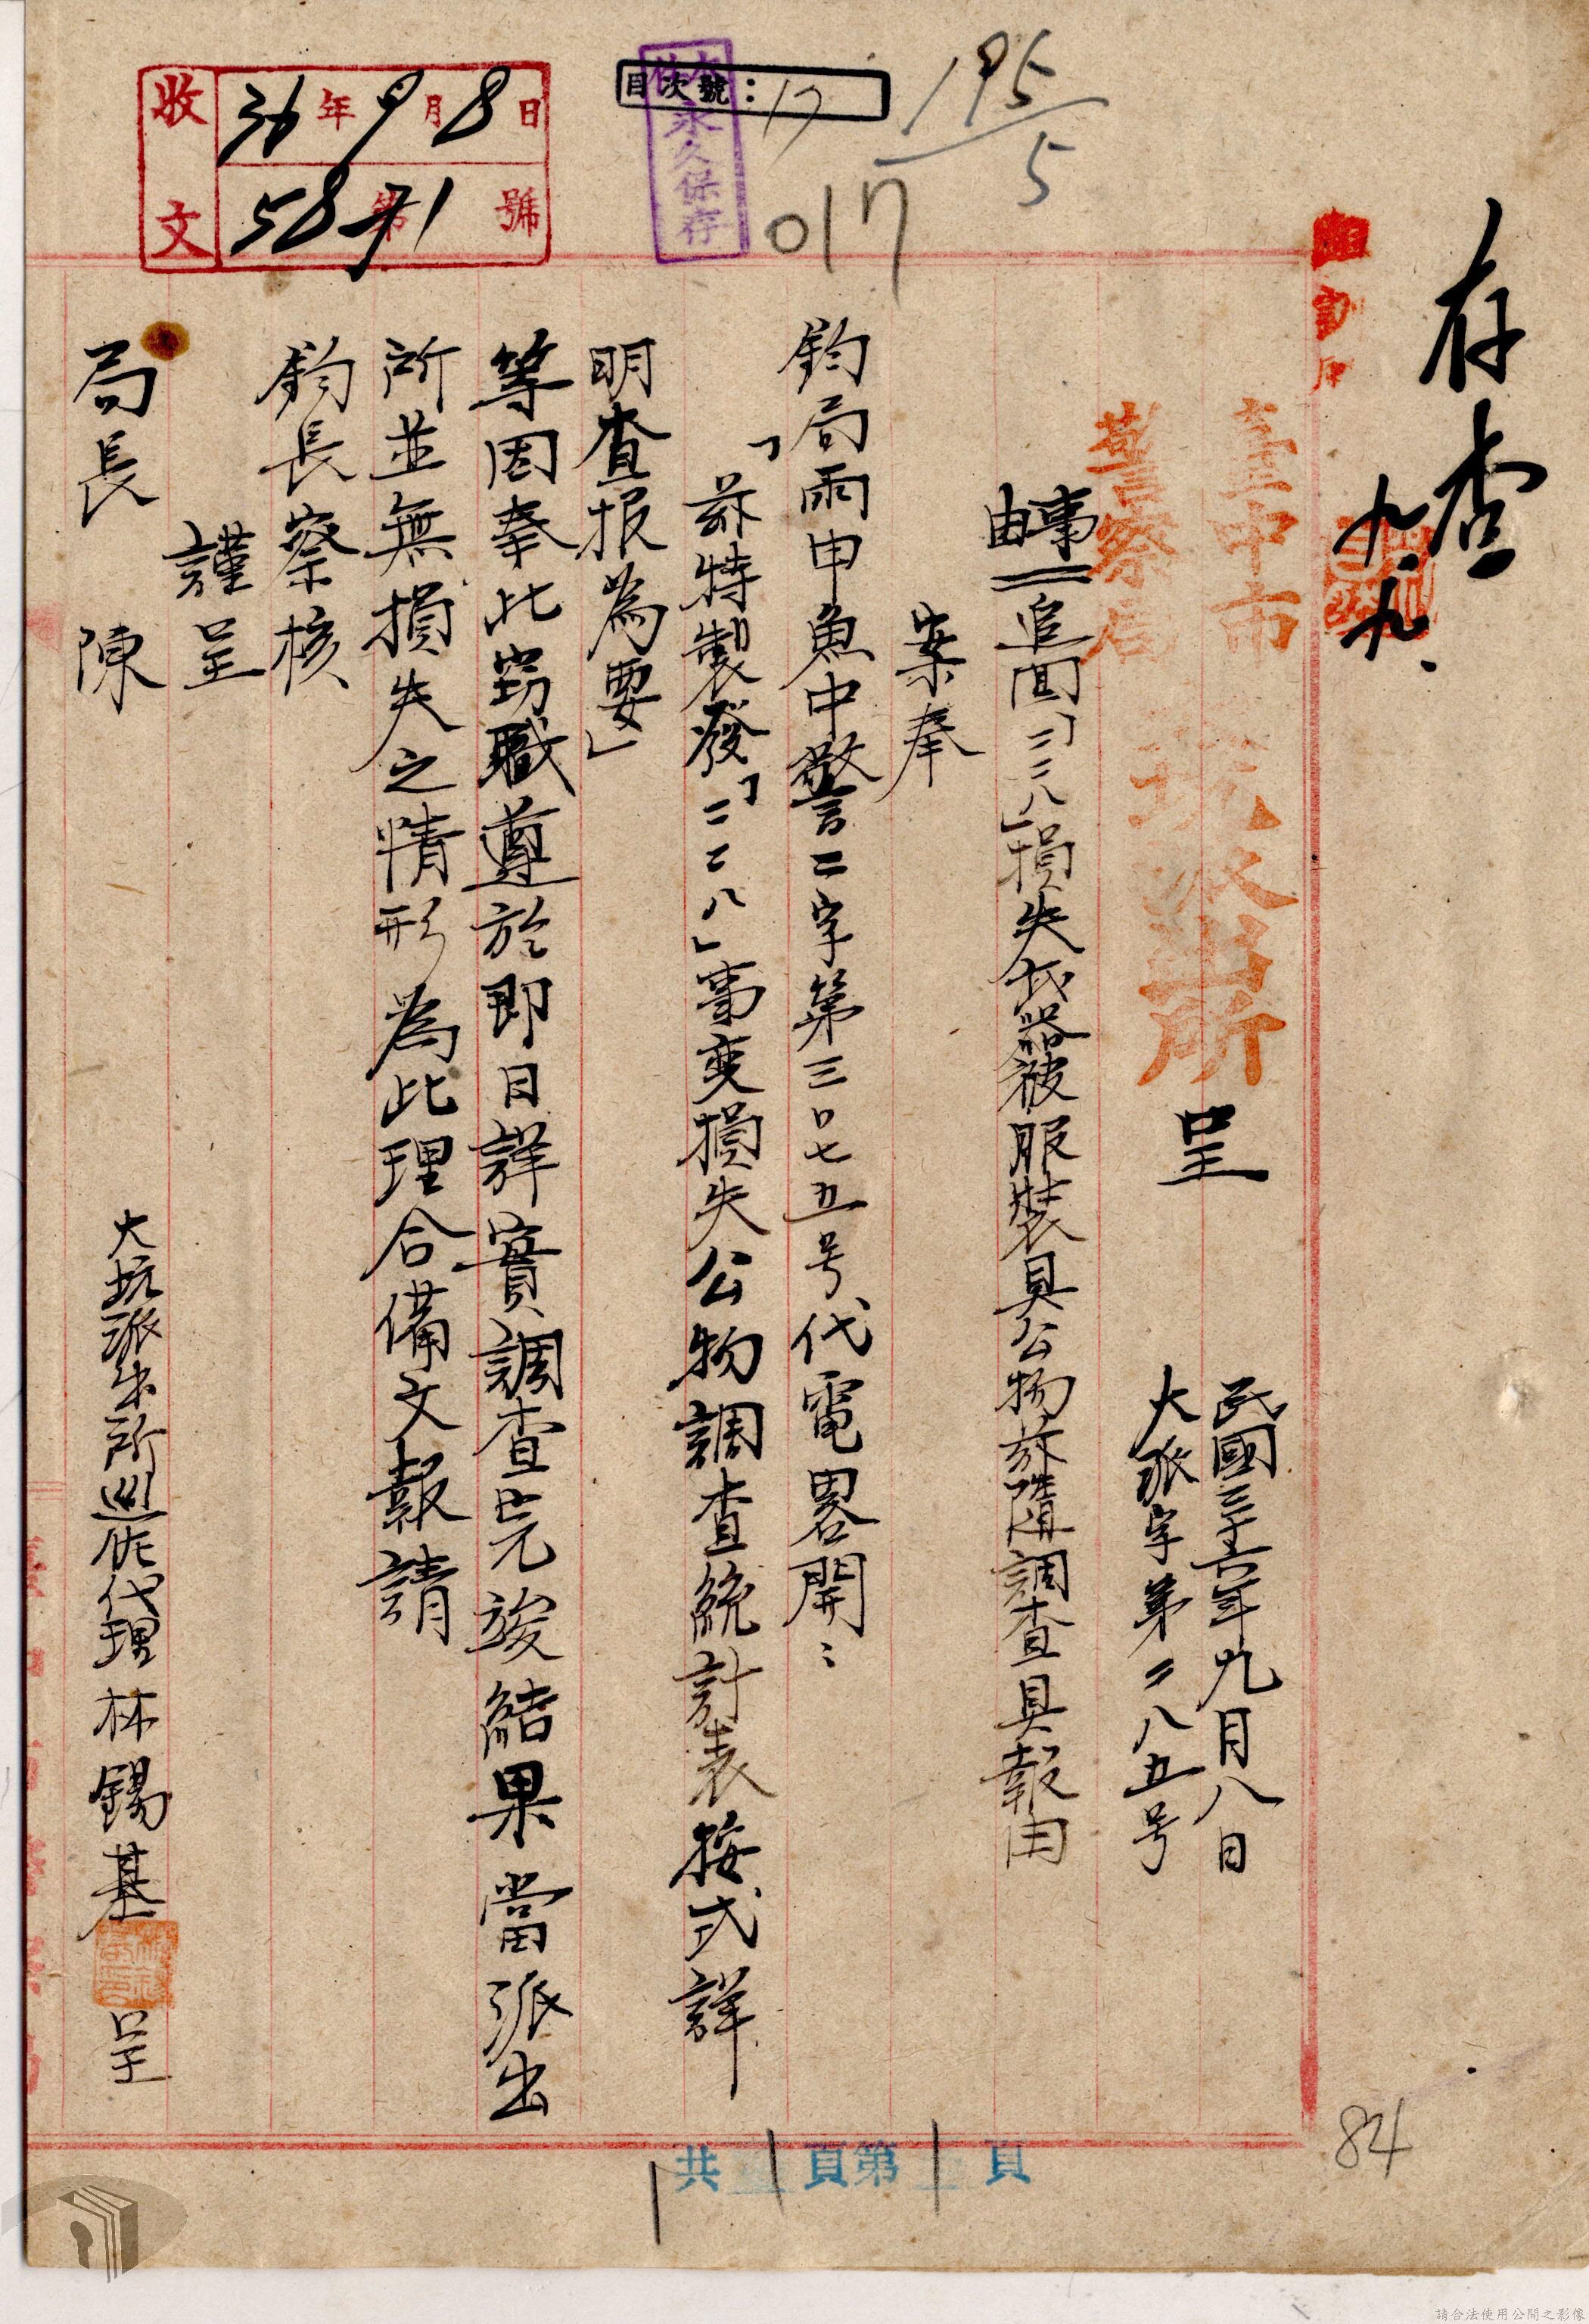 存查
九.九.
臺中市
警察局
坑派出所 呈
民國三十六年九月八日
大派字第二八五号
事由＝追回「二二八」損失武器被服裝具公物茲隨調查具報由
案奉
鈞局雨申魚中警二字第三〇七五号代電畧開：
「茲特製發「二二八」事变損失公物調查統計表按式詳
明查报為要」
等因奉此窃職遵於即日詳實調查完竣結果當派出
所並無損失之情形為此理合備文報請
鈞長察核
謹呈
局長 陳
大坑派出所巡佐代理林錫基 呈
收文
36年9月8日
第5871號
目次號：17
永久保存
017
195/5
共1頁第1頁
84
請合法使用公開之影像